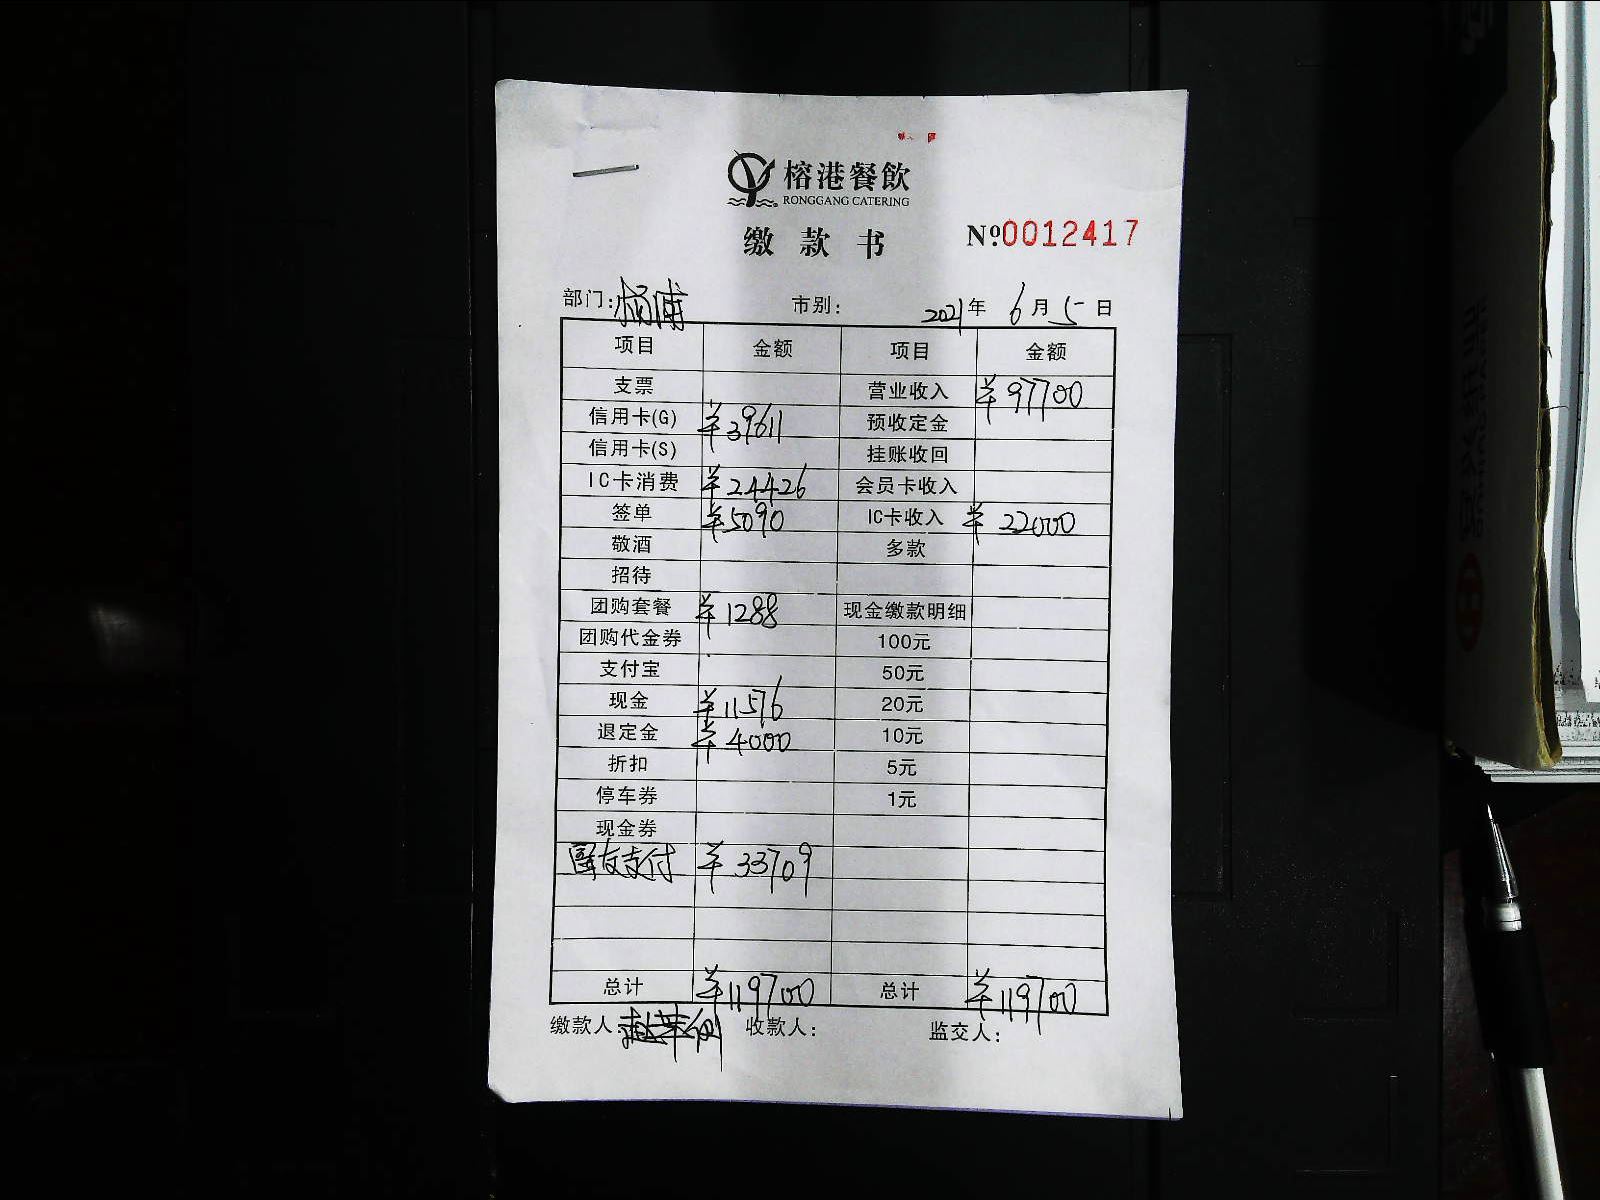 榕港餐飲
RONGGANG CATERING
缴款书 №0012417
部门:杨浦 市别: 2021年6月5日
项目 金额 项目 金额
支票 营业收入 ¥97700
信用卡(G) ¥39611 预收定金
信用卡(S) 挂账收回
IC卡消费 ¥24426 会员卡收入
签单 ¥5090 IC卡收入 ¥22000
敬酒 多款
招待
团购套餐 ¥1288 现金缴款明细
团购代金券 100元
支付宝 50元
现金 ¥11576 20元
退定金 ¥4000 10元
折扣 5元
停车券 1元
现金券
支付 ¥33709
总计 ¥119700 总计 ¥119700
缴款人: 收款人: 监交人: